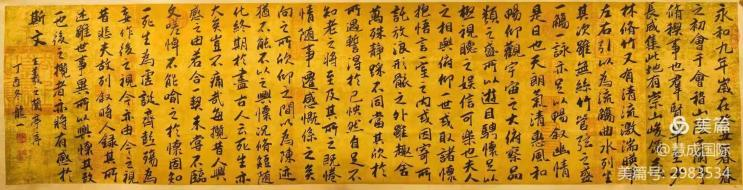 永和九年歲在癸丑暮春
之初會于會稽山
脩稧事也群賢
長咸集此地有崇山峻領
林脩竹又有清流激湍暎
左右引以為流觴曲水列坐
其次雖無絲竹管弦之盛
一觴一詠亦足以暢敘幽情
是日也天朗氣清惠風和
暢仰觀宇宙之大俯察品
類之盛所以遊目騁懷足以
極視聽之娛信可樂也夫人
之相與俯仰一世或取諸懷
抱悟言一室之內或因寄所
託放浪形骸之外雖趣舍
萬殊靜躁不同當其欣於
所遇暫得於己怏然自足不
知老之將至及其所之既惓
情隨事遷感慨係之矣
向之所欣俛仰之間以為陳迹
猶不能不以之興懷況脩短隨
化終期於盡古人云死生亦
大矣豈不痛哉每攬昔人興
感之由若合一契未嘗不臨
文嗟悼不能喻之於懷固知
一死生為虛誕齊彭殤為
妄作後之視今亦由今之視
昔悲夫故列敘時人錄其所
述雖世殊事異所以興懷其致
一也後之攬者亦將有感於
斯文 王羲之蘭亭序
丁酉冬 龍
美篇
慧成国际
美篇号:2983534